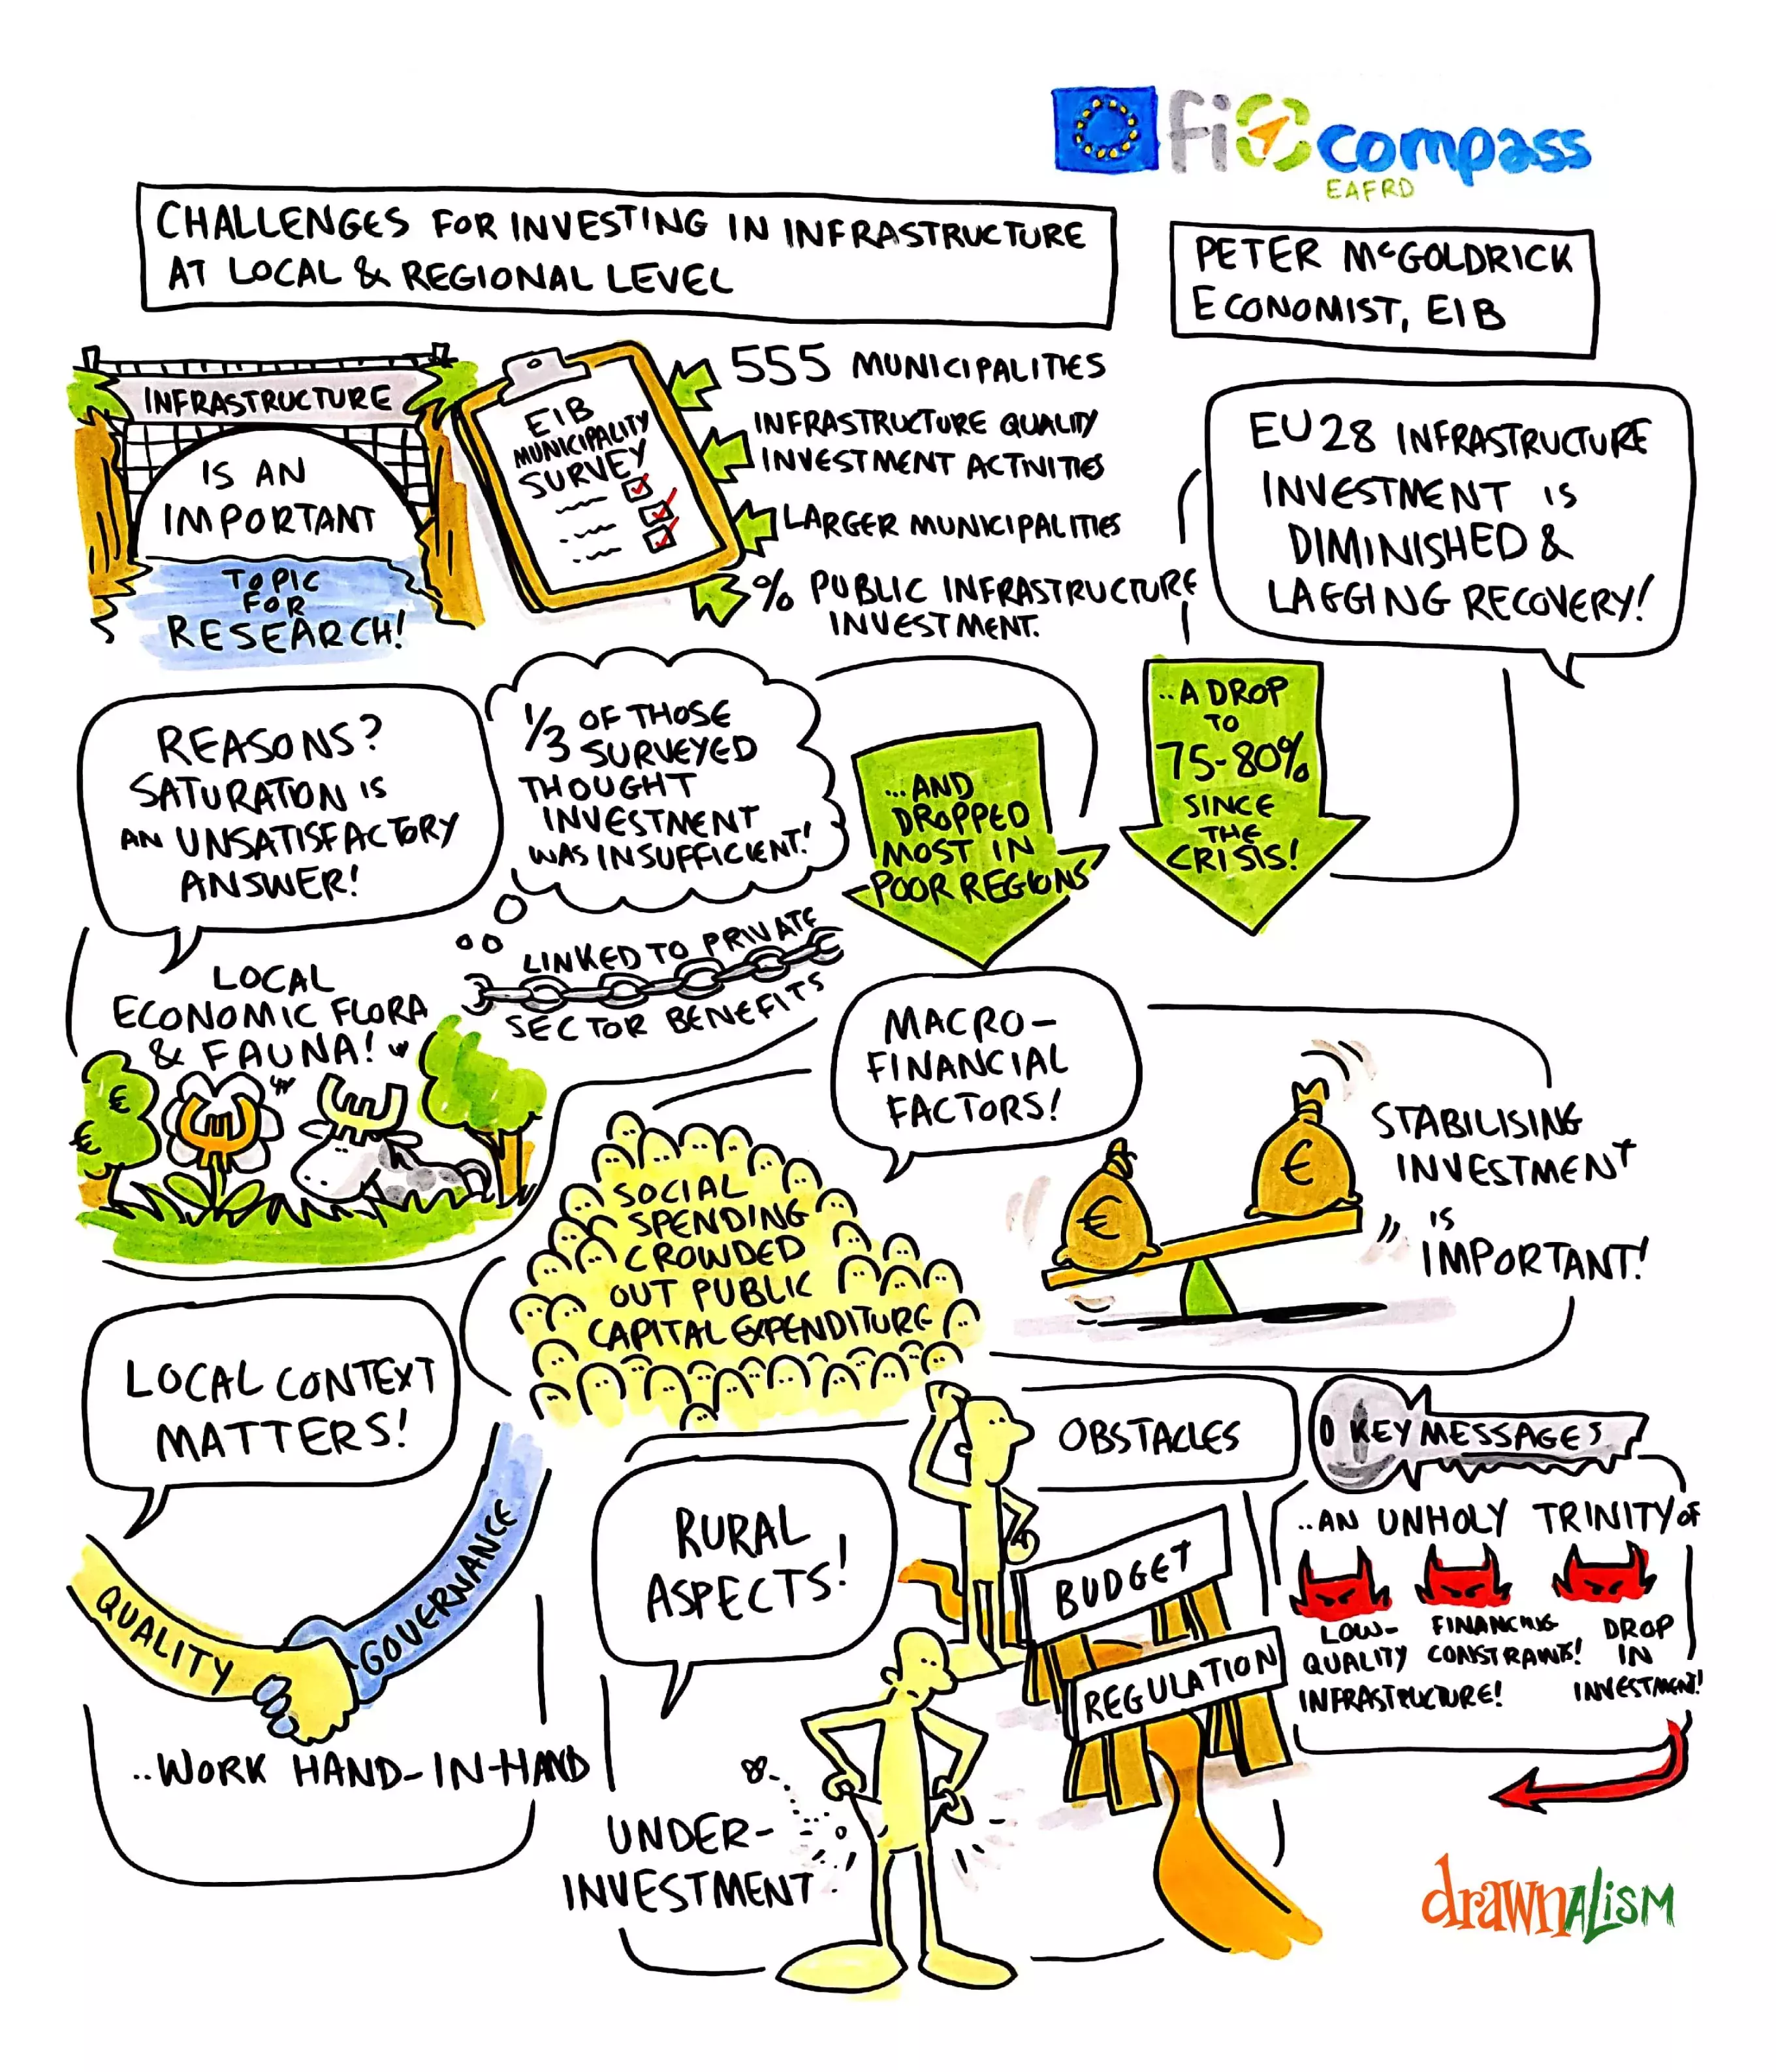 fi compass
EAFRD
CHALLENGES FOR INVESTING IN INFRASTRUCTURE
AT LOCAL & REGIONAL LEVEL
PETER McGOLDRICK
ECONOMIST, EIB
INFRASTRUCTURE
IS AN
IMPORTANT
TOPIC
FOR
RESEARCH!
EIB
MUNICIPALITY
SURVEY
555 MUNICIPALITIES
INFRASTRUCTURE QUALITY
INVESTMENT ACTIVITIES
LARGER MUNICIPALITIES
% PUBLIC INFRASTRUCTURE
INVESTMENT.
EU28 INFRASTRUCTURE
INVESTMENT IS
DIMINISHED &
LAGGING RECOVERY!
..A DROP
TO
75-80%
SINCE
THE
CRISIS!
...AND
DROPPED
MOST IN
POOR REGIONS
1/3 OF THOSE
SURVEYED
THOUGHT
INVESTMENT
WAS INSUFFICIENT!
REASONS?
SATURATION IS
AN UNSATISFACTORY
ANSWER!
LINKED TO PRIVATE
SECTOR BENEFITS
LOCAL
ECONOMIC FLORA
& FAUNA!
€
€
MACRO-
FINANCIAL
FACTORS!
SOCIAL
SPENDING
CROWDED
OUT PUBLIC
CAPITAL EXPENDITURE
€
€
STABILISING
INVESTMENT
IS
IMPORTANT!
LOCAL CONTEXT
MATTERS!
QUALITY
GOVERNANCE
..WORK HAND-IN-HAND
RURAL
ASPECTS!
UNDER-
INVESTMENT
OBSTACLES
BUDGET
REGULATION
KEY MESSAGES
..AN UNHOLY TRINITY OF
LOW-
QUALITY
INFRASTRUCTURE!
FINANCING
CONSTRAINTS!
DROP
IN
INVESTMENT!
drawnalism